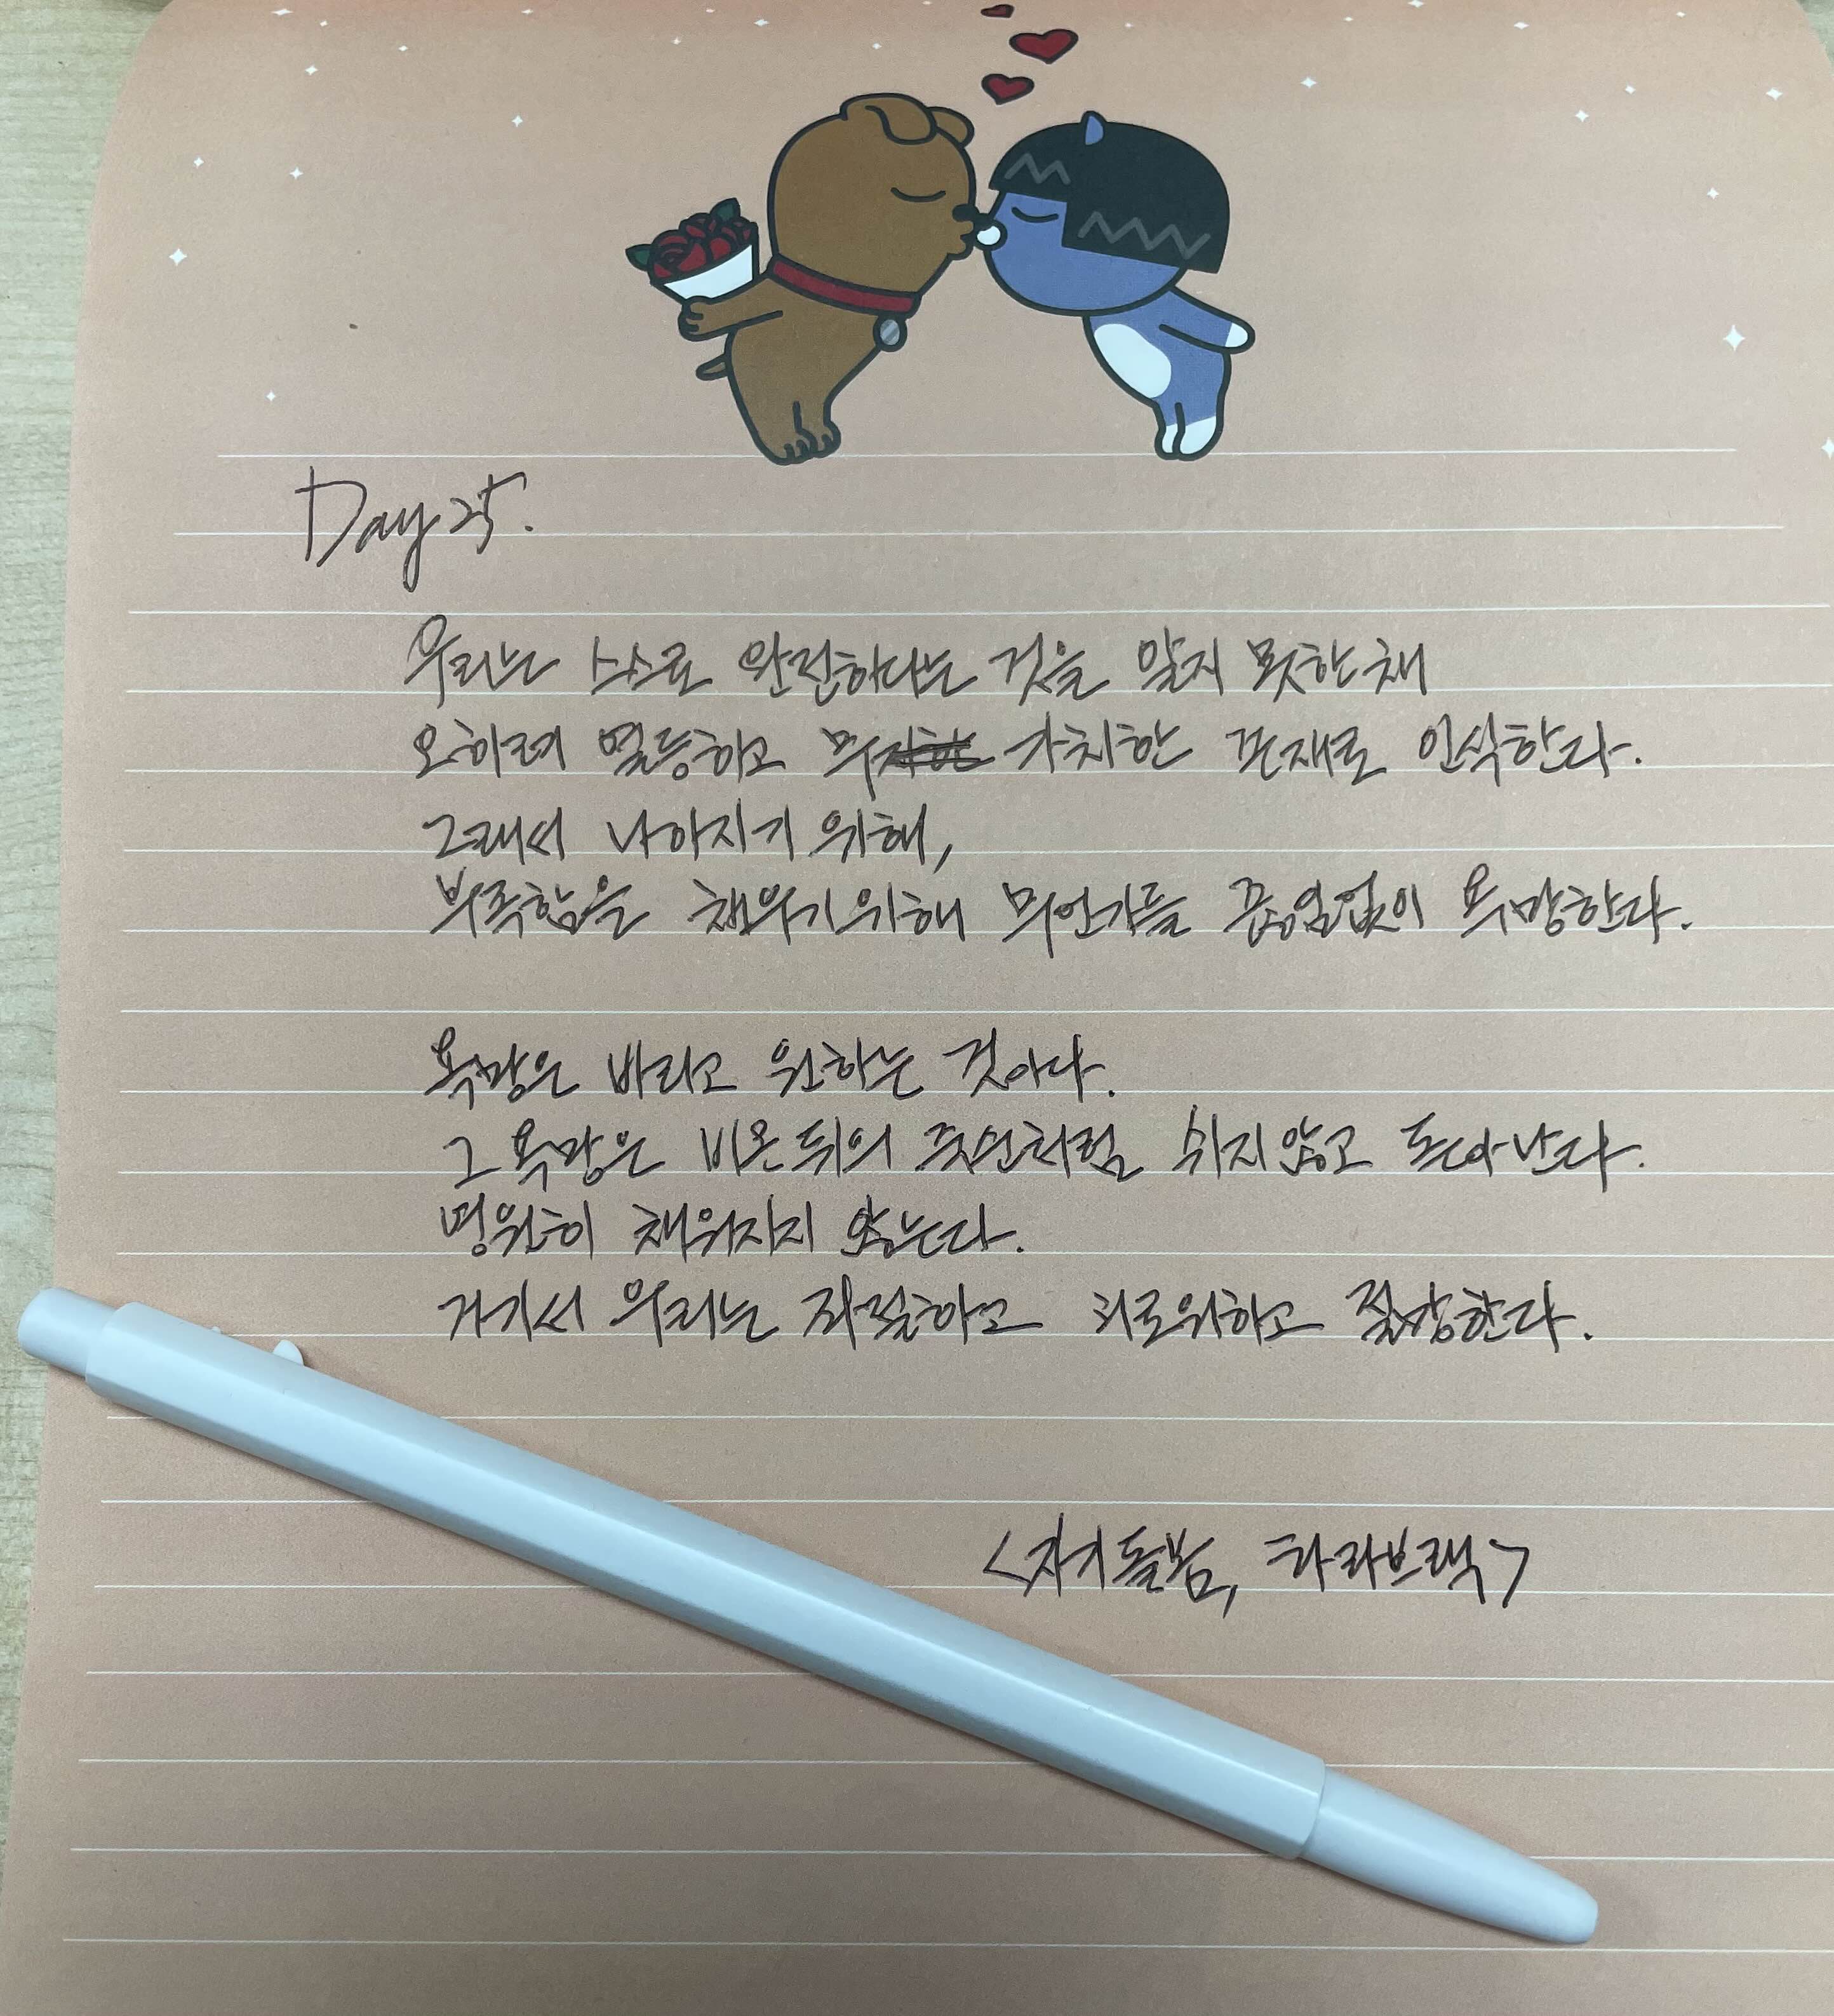 Day 25.
우리는 스스로 완전하다는 것을 알지 못한 채
오히려 열등하고 무가치한 존재로 인식한다.
그래서 나아지기 위해,
부족함을 채우기 위해 무언가를 끊임없이 욕망한다.
욕망은 바라고 원하는 것이다.
그 욕망은 비온 뒤의 죽순처럼 쉬지 않고 돋아난다.
영원히 채워지지 않는다.
거기서 우리는 좌절하고 괴로워하고 절망한다.
<자기돌봄, 타라브랙>